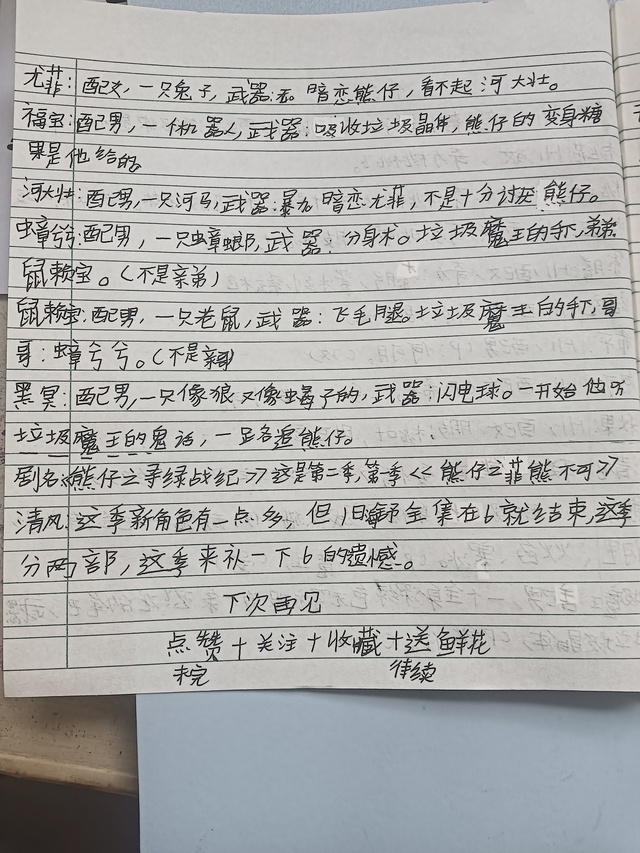 尤菲:配女,一只兔子,武器:无。暗恋熊仔,看不起河大壮。
福宝:配男,一个机器人,武器:吸收垃圾晶件,熊仔的变身糖
果是他给的。
河大壮:配男,一只河马,武器:暴力 暗恋尤菲,不是十分讨厌熊仔。
蟑兮兮:配男,一只蟑螂,武器:分身术。垃圾魔王的手下,弟弟
鼠赖宝。(不是亲弟)
鼠赖宝:配男,一只老鼠,武器:飞毛腿。垃圾魔王的手下,哥
哥:蟑兮兮。(不是亲哥)
黑冥:配男,一只像狼又像蝎子的,武器:闪电球。一开始他听
垃圾魔王的鬼话,一路追熊仔。
剧名:《熊仔之寻绿战纪》这是第二季,第一季《熊仔之菲熊不可》
清风:这季新角色有一点多,但旧海带全集在6就结束,这季
分两部,这季来补一下6的遗憾。
下次再见
点赞+关注+收藏+送鲜花
未完 待续